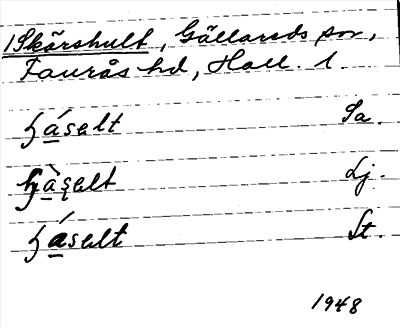 1 Skårshult, Gällareds sn,
Faurås hd, Hall. l.
ʒása̱lt Sa.
ʒàsalt Lj.
ʒásalt St.
1948